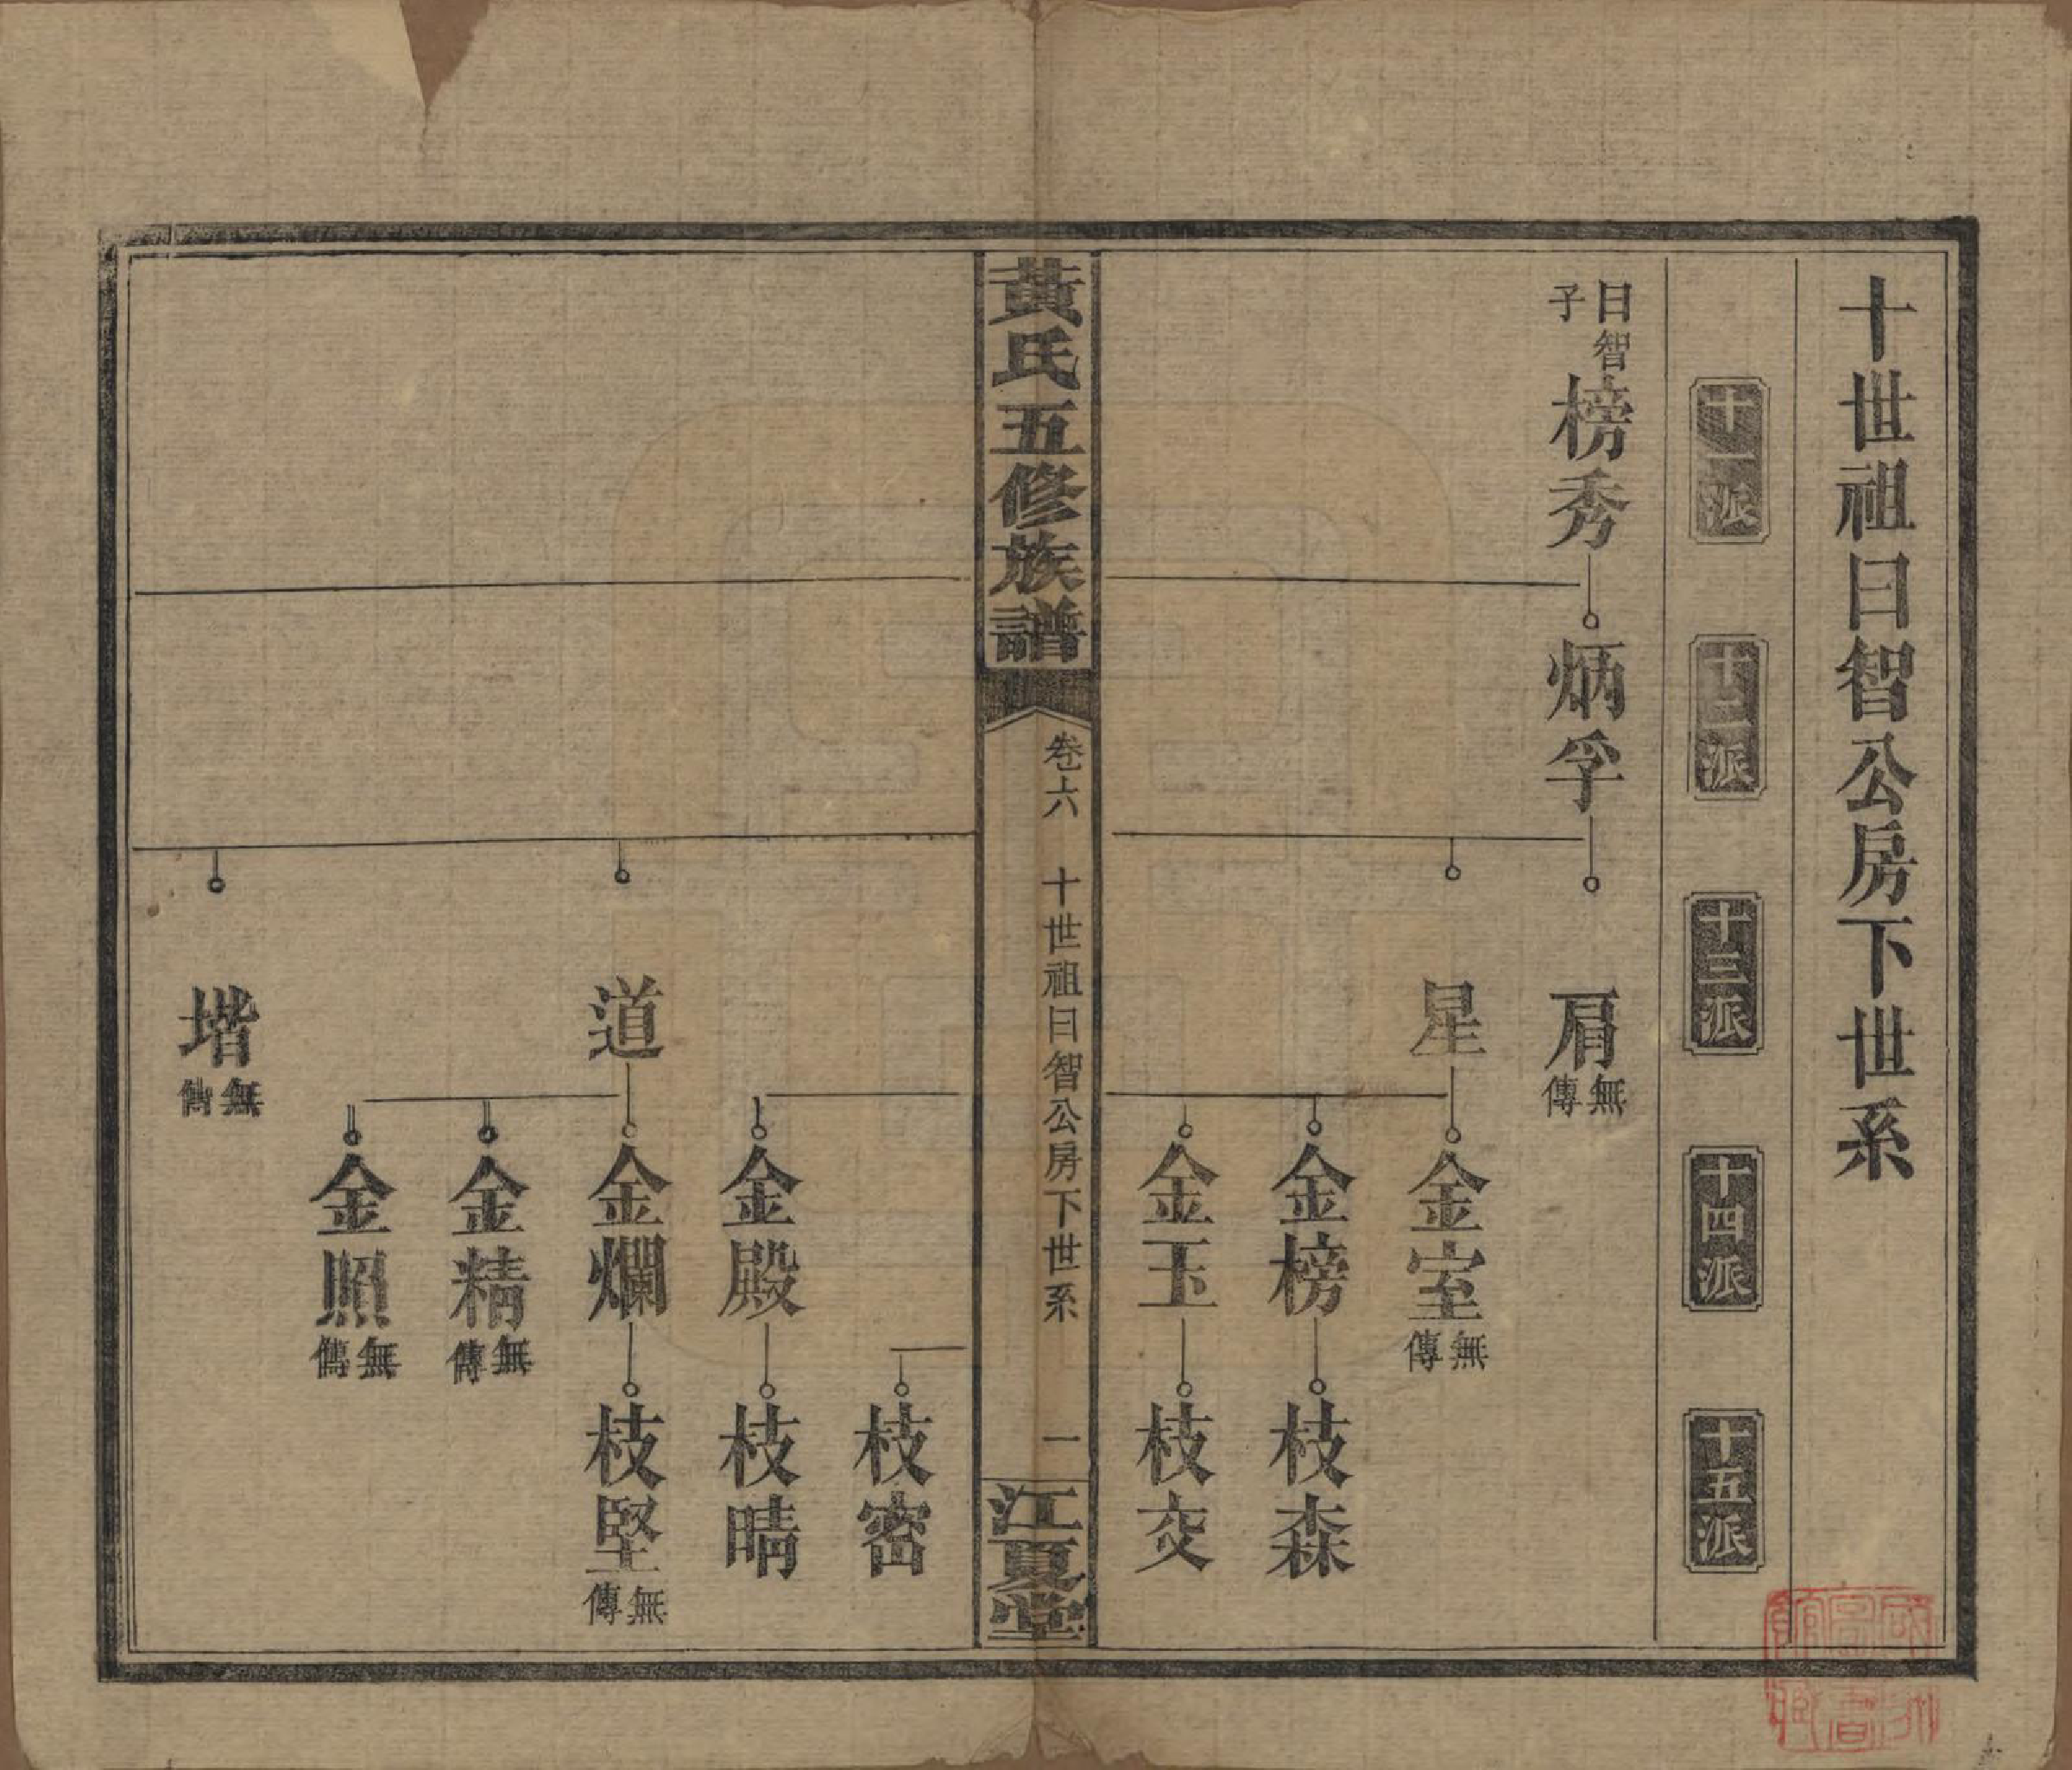 十世祖曰智公房下世系
十一派
十二派
十三派
十四派
十五派
曰智子
榜秀
炳孚
肩
無傳
星
金室
無傳
金榜
枝森
金玉
枝交
黃氏五修族譜
卷六
十世祖曰智公房下世系
一
江夏堂
枝密
金殿
枝晴
道
金爛
枝堅
無傳
金精
無傳
金照
無傳
堦
無傳